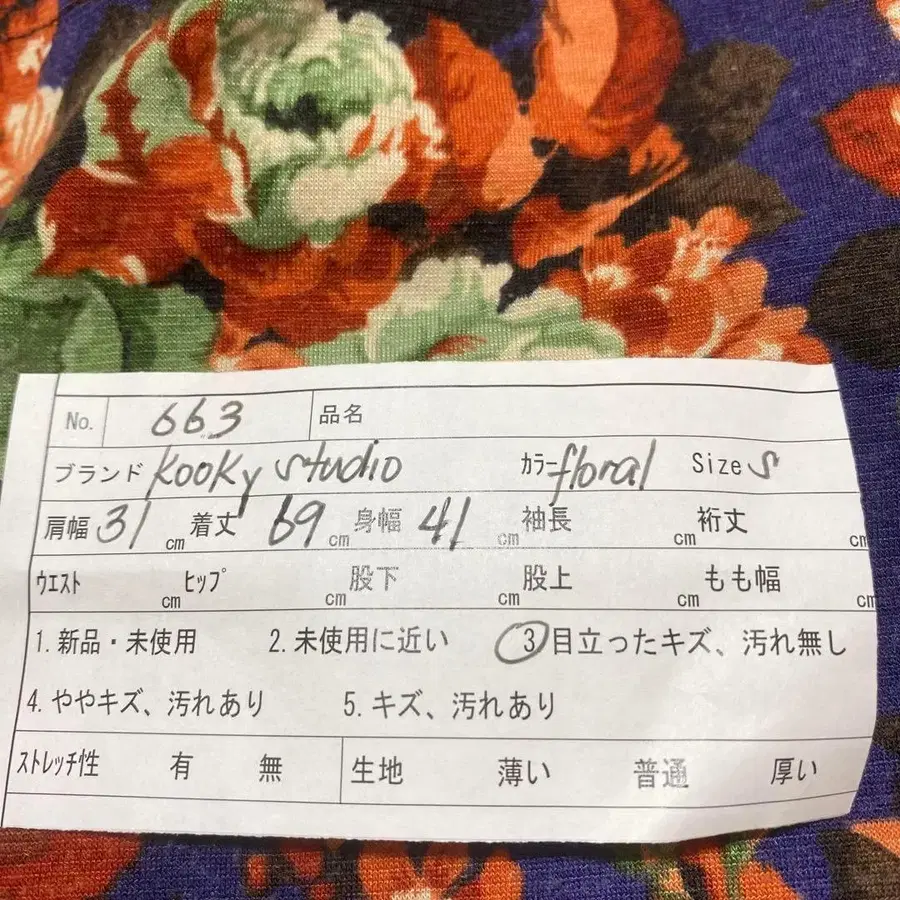 No. 663 品名
ブランド Kooky studio カラー floral Size S
肩幅 31 cm 着丈 69 cm 身幅 41 cm 袖長 cm 裄丈 cm
ウエスト cm ヒップ cm 股下 cm 股上 cm もも幅 cm
1. 新品・未使用 2. 未使用に近い 3 目立ったキズ、汚れ無し
4. ややキズ、汚れあり 5. キズ、汚れあり
ストレッチ性 有 無 生地 薄い 普通 厚い